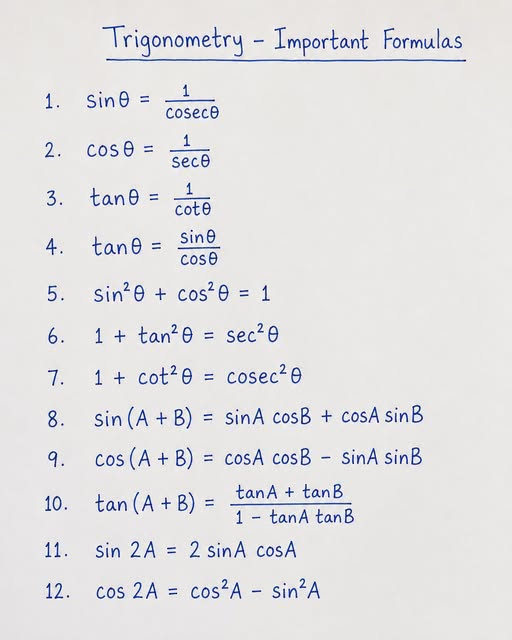 Trigonometry – Important Formulas
1. sinθ = 1/cosecθ
2. cosθ = 1/secθ
3. tanθ = 1/cotθ
4. tanθ = sinθ/cosθ
5. sin²θ + cos²θ = 1
6. 1 + tan²θ = sec²θ
7. 1 + cot²θ = cosec²θ
8. sin(A + B) = sinA cosB + cosA sinB
9. cos(A + B) = cosA cosB – sinA sinB
10. tan(A + B) = (tanA + tanB)/(1 – tanA tanB)
11. sin 2A = 2 sinA cosA
12. cos 2A = cos²A – sin²A